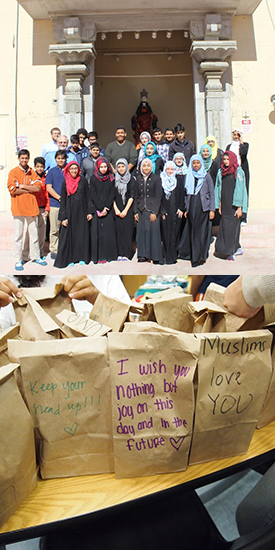 Keep your
head up!!! ♡
I wish you
nothing but
joy on this
day and in the
future ♡
Muslims
love
YOU